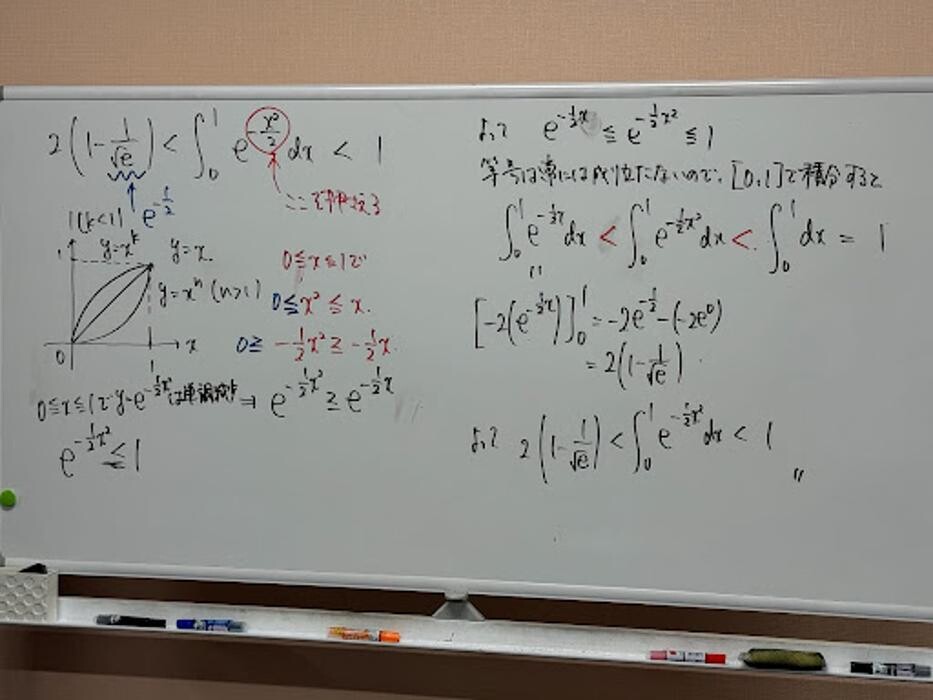 2(1-1/√e) < ∫₀¹ e^{-x²/2} dx < 1
e^{-1/2}
ここで押さえる
1(k<1)
y=x^k y=x.
1
y=xⁿ (n>1)
0 1 x
0≦x≦1で
0≦x²≦x.
0≧ -1/2x² ≧ -1/2x.
0≦x≦1で y=e^{-1/2x²}は単調減少 ⇒ e^{-1/2x²} ≧ e^{-1/2x}
e^{-1/2x²} ≦ 1
よって e^{-1/2x} ≦ e^{-1/2x²} ≦ 1
等号は常には成り立たないので、[0,1]で積分すると
∫₀¹ e^{-1/2x} dx < ∫₀¹ e^{-1/2x²} dx < ∫₀¹ dx = 1
〃
[-2(e^{-1/2x})]₀¹ = -2e^{-1/2} - (-2e⁰)
= 2(1-1/√e).
よって 2(1-1/√e) < ∫₀¹ e^{-1/2x²} dx < 1
〃